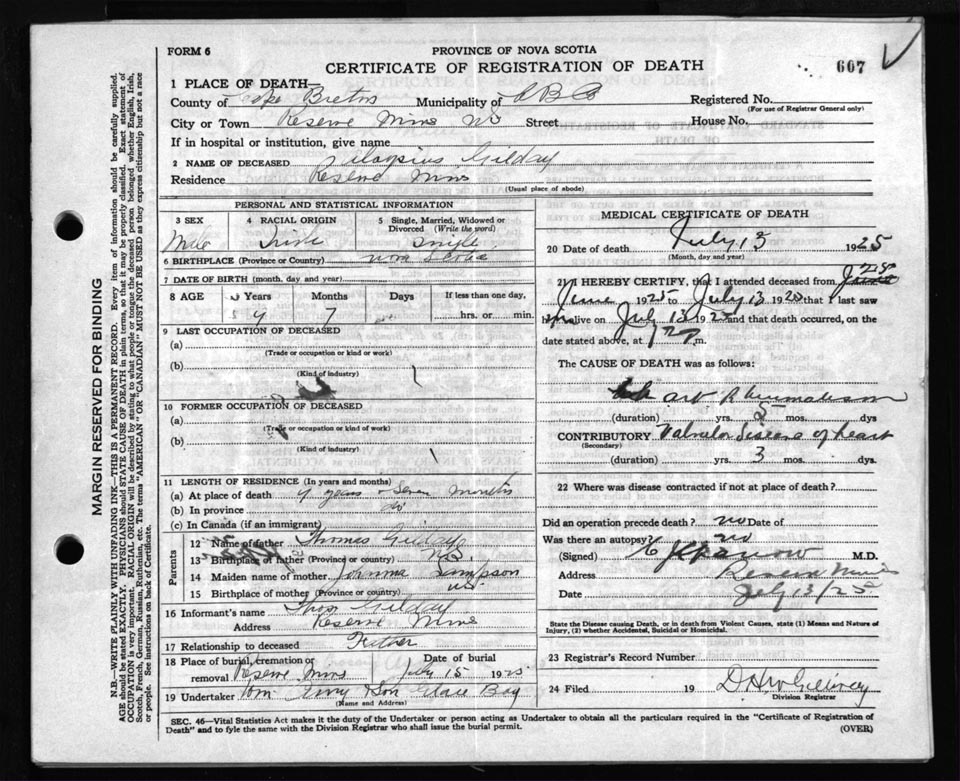 FORM 6
PROVINCE OF NOVA SCOTIA
CERTIFICATE OF REGISTRATION OF DEATH
607
1 PLACE OF DEATH—
County of Cape Breton Municipality of C B Registered No.
(For use of Registrar General only)
City or Town Reserve Mines NS Street House No.
If in hospital or institution, give name
2 NAME OF DECEASED Aloysius Gilday
Residence Reserve Mines
(Usual place of abode)
PERSONAL AND STATISTICAL INFORMATION
3 SEX 4 RACIAL ORIGIN 5 Single, Married, Widowed or Divorced (Write the word)
Male Irish single
6 BIRTHPLACE (Province or Country) Nova Scotia
7 DATE OF BIRTH (month, day and year)
8 AGE Years Months Days If less than one day,
7 hrs. or min.
9 LAST OCCUPATION OF DECEASED
(a)
(Trade or occupation or kind or work)
(b)
(Kind of industry)
10 FORMER OCCUPATION OF DECEASED
(a)
(Trade or occupation or kind of work)
(b)
(Kind of industry)
11 LENGTH OF RESIDENCE (In years and months)
(a) At place of death years Seven months
(b) In province do
(c) In Canada (if an immigrant)
Parents
12 Name of father Thomas Gilday
13 Birthplace of father (Province or country) N.S.
14 Maiden name of mother Simpson
15 Birthplace of mother (Province or country) NS
16 Informant's name Thos Gilday
Address Reserve Mines
17 Relationship to deceased Father
18 Place of burial, cremation or removal Reserve Mines Date of burial July 15 1925
19 Undertaker & Son Glace Bay
(Name and Address)
MEDICAL CERTIFICATE OF DEATH
20 Date of death July 13 1925
(Month, day and year)
21 I HEREBY CERTIFY, that I attended deceased from
June 1925 to July 13 1925 that I last saw
h alive on July 13 1925 and that death occurred, on the
date stated above, at m.
The CAUSE OF DEATH was as follows:
Rheumatism
(duration) yrs. 5 mos. dys
CONTRIBUTORY Valvular Disease of heart
(Secondary)
(duration) yrs. 3 mos. dys.
22 Where was disease contracted if not at place of death?
Did an operation precede death? no Date of
Was there an autopsy no
(Signed) M.D.
Address Reserve Mines
Date July 13/25
State the Disease causing Death, or in death from Violent Causes, state (1) Means and Nature of Injury, (2) whether Accidental, Suicidal or Homicidal.
23 Registrar's Record Number
24 Filed 19 D H McGillivray
Division Registrar
SEC. 46—Vital Statistics Act makes it the duty of the Undertaker or person acting as Undertaker to obtain all the particulars required in the "Certificate of Registration of
Death" and to fyle the same with the Division Registrar who shall issue the burial permit. (OVER)
MARGIN RESERVED FOR BINDING
N.B.—WRITE PLAINLY WITH UNFADING INK—THIS IS A PERMANENT RECORD. Every item of information should be carefully supplied.
AGE should be stated EXACTLY. PHYSICIANS should STATE CAUSE OF DEATH in plain terms, so that it may be properly classified. Exact statement of
OCCUPATION is very important. RACIAL ORIGIN will be described by stating to what people or tongue the deceased person belonged whether English, Irish,
Scotch, French, German, Russian, Ruthenian, etc. The terms "AMERICAN" OR "CANADIAN" MUST NOT BE USED as they express citizenship but not a race
or people. See instructions on back of Certificate.